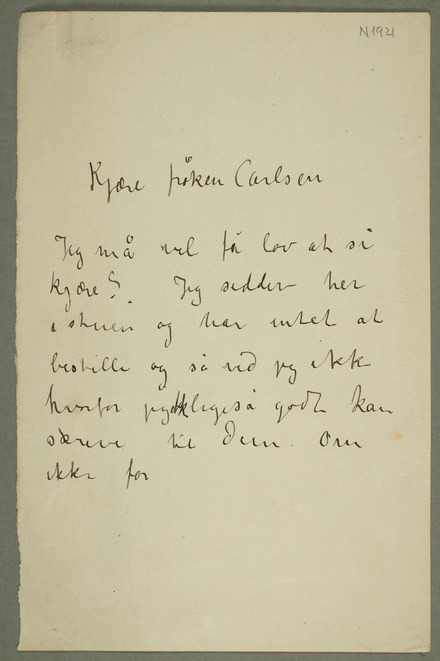 N1921
Kjære frøken Carlsen
Jeg må vel få lov at si
kjære? Jeg sidder her
i stuen og har intet at
bestille og så ved jeg ikke
hvorfor jeg ikke ligeså godt kan
skrive til Dem. Om
ikke for